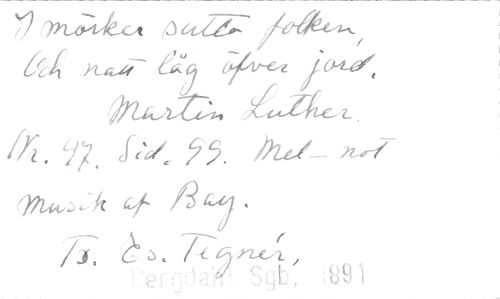 I mörker sutto folken,
Och natt låg öfver jord.
Martin Luther.
Nr. 97. Sid. 99. Mel-not
Musik af Bay.
Tr. Es. Tegnér,
Bergdahl. Sgb. 1891